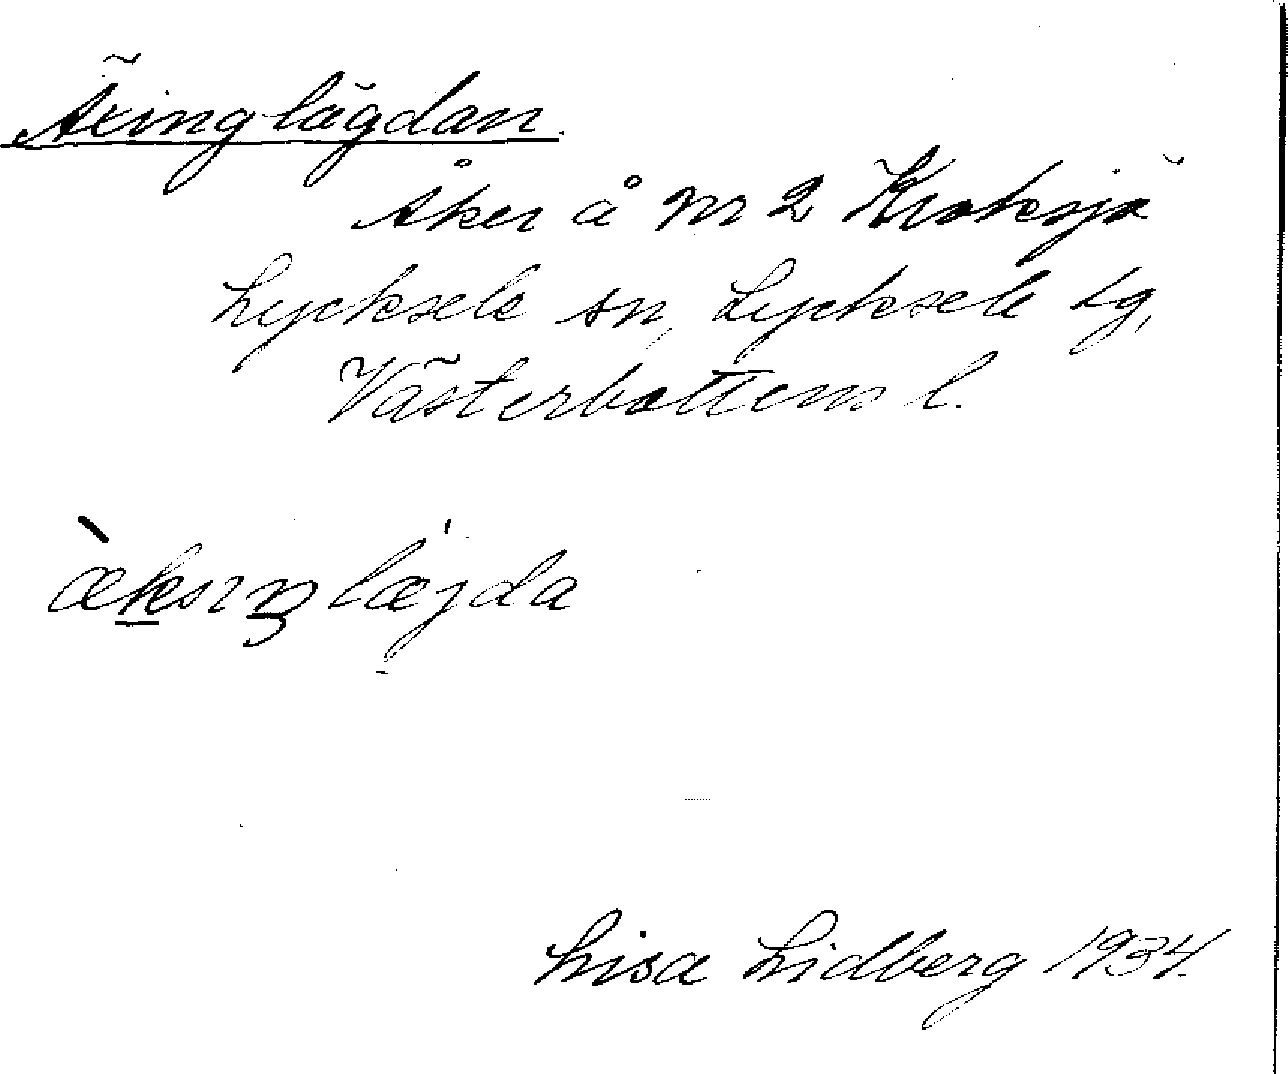 Äxinglägdan.
Åker å Nr 2 Kroksjö
Lycksele sn, Lycksele tg,
Västerbottens l.
æ̀ksɪŋlæ̍jda
Lisa Lidberg 1934.